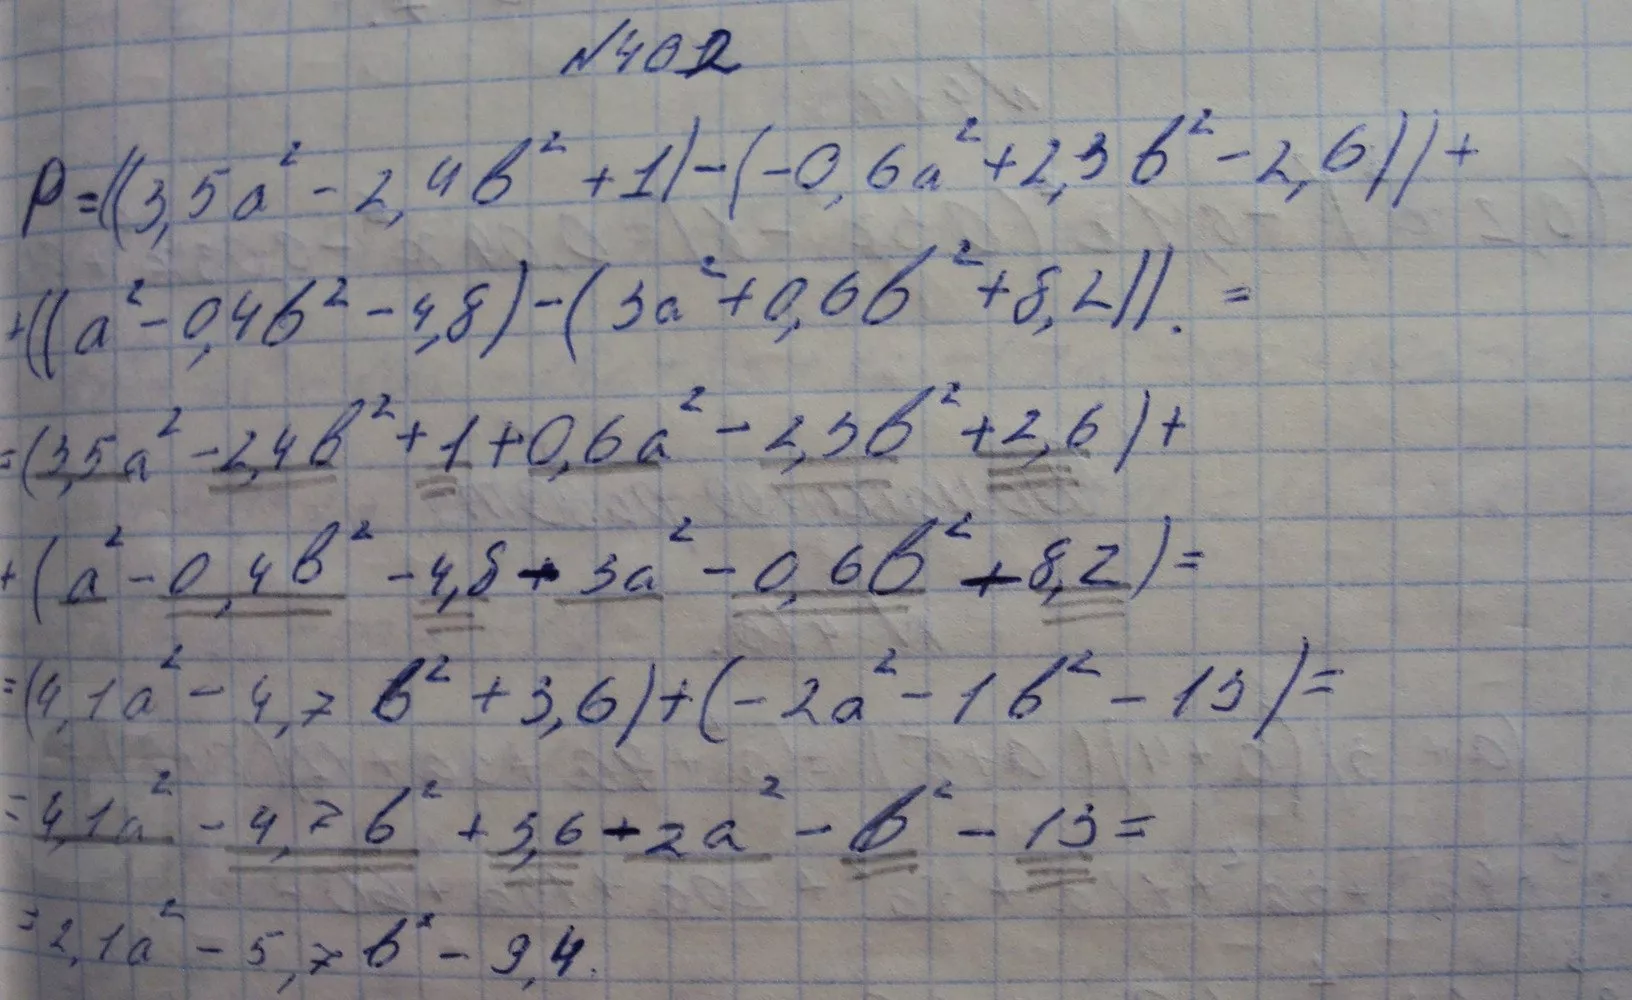 №402
P=((3,5a²-2,4b²+1)-(-0,6a²+2,3b²-2,6))+
+((a²-0,4b²-4,8)-(3a²+0,6b²+8,2)).=
=(3,5a²-2,4b²+1+0,6a²-2,3b²+2,6)+
+(a²-0,4b²-4,8-3a²-0,6b²-8,2)=
=(4,1a²-4,7b²+3,6)+(-2a²-1b²-13)=
=4,1a²-4,7b²+3,6-2a²-b²-13=
=2,1a²-5,7b²-9,4.